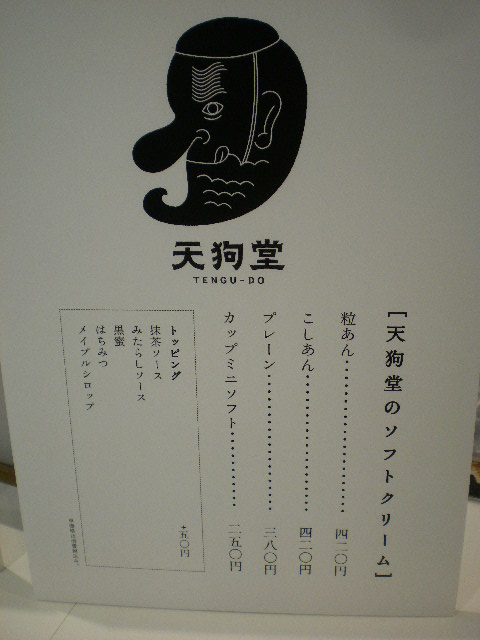 天狗堂
TENGU-DO
[天狗堂のソフトクリーム]
粒あん……………………四二〇円
こしあん……………………四二〇円
プレーン……………………三八〇円
カップミニソフト……………二五〇円
トッピング
抹茶ソース
みたらしソース
黒蜜
はちみつ
メイプルシロップ
+五〇円